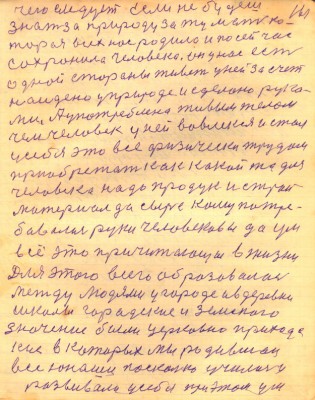 чего следует если не будеш
знат за природу за ту мат ко
торая всех нас родила и по сей час
сохранила человека, он у нас ест
одной стороны живет у ней за счет
найдено у природе и сделано рука
ми А употреблина живым телом
чем человек у ней вовлекся и стал
у себя это всё физически трудом
приобретат как какой та для
человека надо продук и строй
материал да сырье кому потре
бавалас руки человековы да ум
всё это причитающи в жизни
Для этого всего образовалас
между людями у городе а в деревни
школы гарадские и земского
значение были церковно прихода
кие в каторых мы родивши
все юнаши посколко училис
развивали у себя при этом ум